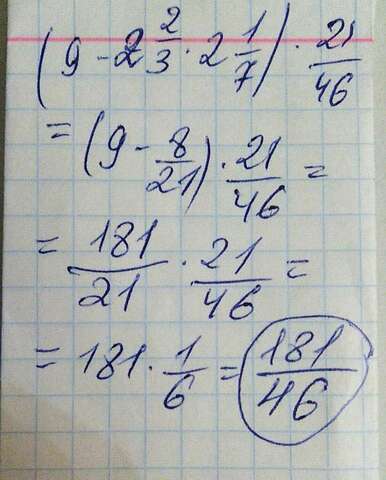 (9 - 2 2/3 · 2 1/7) · 21/46
= (9 - 8/21) · 21/46 =
= 181/21 · 21/46 =
= 181 · 1/6 = 181/46